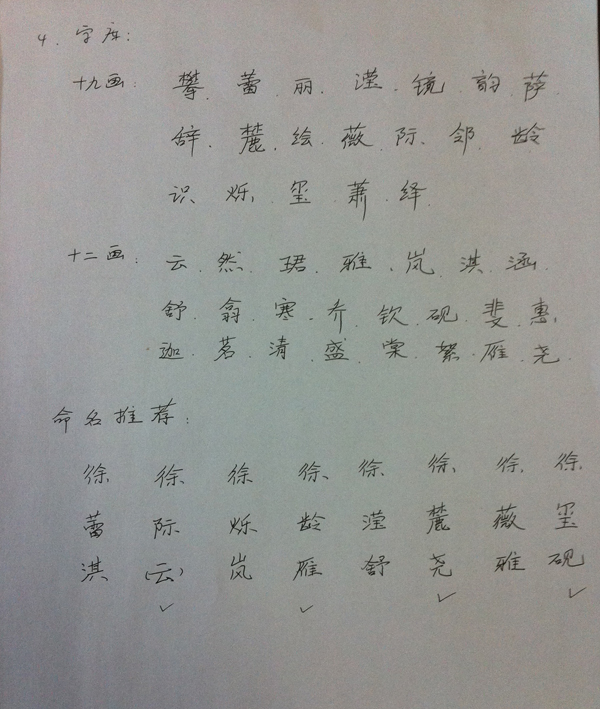 4. 字库:
十九画: 攀. 蕾. 丽. 滢. 镜. 韵. 萨.
辞. 麓. 绘. 薇. 际. 邻. 龄
识. 烁. 玺. 萧. 绎.
十二画: 云. 然. 珺. 雅. 岚. 淇. 涵.
舒. 翕. 寒. 乔. 钦. 砚. 斐. 惠.
迦. 茗. 清. 盛. 棠. 絮. 雁. 尧.
命名推荐:
徐 徐 徐 徐 徐 徐 徐 徐
蕾 际 烁 龄 滢 麓 薇 玺
淇 (云) 岚 雁 舒 尧 雅 砚
✓ ✓ ✓ ✓